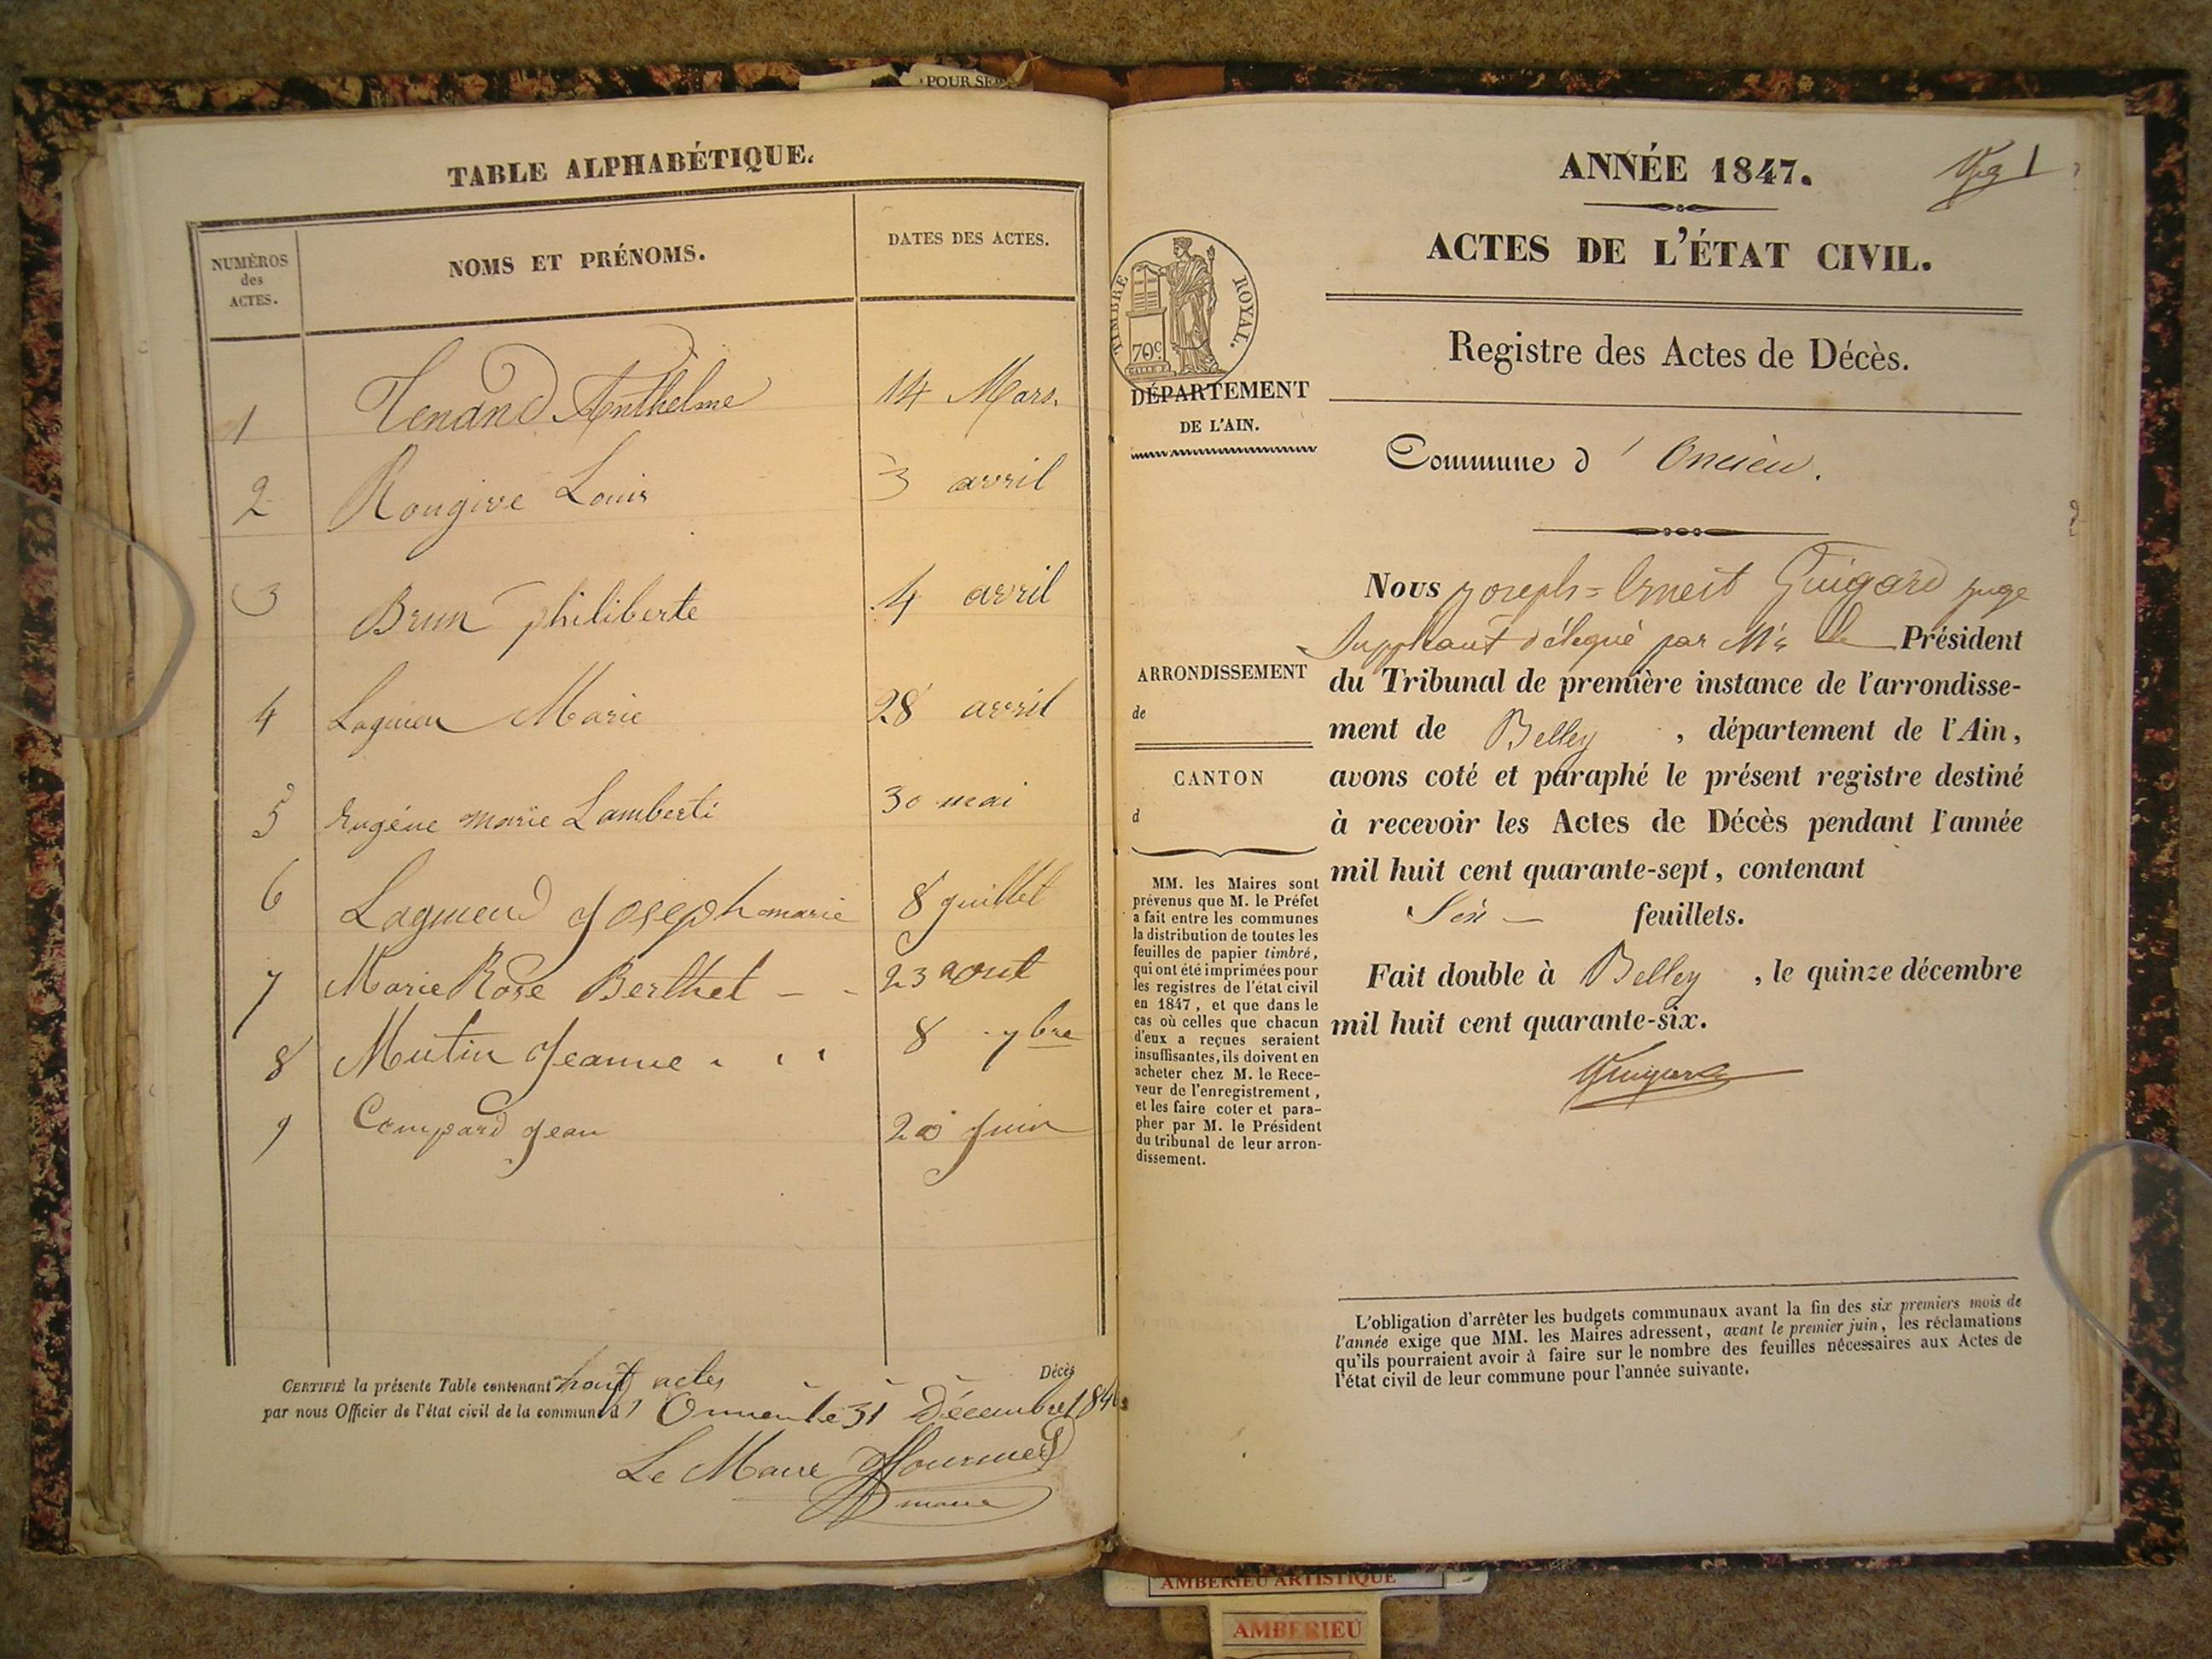 POUR SE
TABLE ALPHABÉTIQUE.
NUMÉROS
des
ACTES.
NOMS ET PRÉNOMS.
DATES DES ACTES.
1 Tenand Anthelme 14 Mars.
2 Rougive Louis 3 avril
3 Brun philiberte 4 avril
4 Lagnieu Marie 28 avril
5 Eugéne marie Lamberti 30 mai
6 Lagnieud Joseph marie 8 juillet
7 Marie Rose Berthet 23 aout
8 Mutin Jeanne 8 7bre
9 Compard Jean 20 Juin
CERTIFIÉ la présente Table contenant actes Décès
par nous Officier de l'état civil de la commune d' le 31 Décembre
Le Maire
maire
ANNÉE 1847.
1
ACTES DE L'ÉTAT CIVIL.
Registre des Actes de Décès.
TIMBRE ROYAL.
70c
DÉPARTEMENT
DE L'AIN.
Commune d' Oncieu.
ARRONDISSEMENT
de
CANTON
d
MM. les Maires sont
prévenus que M. le Préfet
a fait entre les communes
la distribution de toutes les
feuilles de papier timbré,
qui ont été imprimées pour
les registres de l'état civil
en 1847, et que dans le
cas où celles que chacun
d'eux a reçues seraient
insuffisantes, ils doivent en
acheter chez M. le Rece-
veur de l'enregistrement,
et les faire coter et para-
pher par M. le Président
du tribunal de leur arron-
dissement.
Nous Joseph=Ernest Guigard juge
Suppléant délégué par Mr le Président
du Tribunal de première instance de l'arrondisse-
ment de Belley , département de l'Ain,
avons coté et paraphé le présent registre destiné
à recevoir les Actes de Décès pendant l'année
mil huit cent quarante-sept, contenant
Six feuillets.
Fait double à Belley , le quinze décembre
mil huit cent quarante-six.
Guigard
L'obligation d'arrêter les budgets communaux avant la fin des six premiers mois de
l'année exige que MM. les Maires adressent, avant le premier juin, les réclamations
qu'ils pourraient avoir à faire sur le nombre des feuilles nécessaires aux Actes de
l'état civil de leur commune pour l'année suivante.
AMBERIEU ARTISTIQUE
AMBERIEU